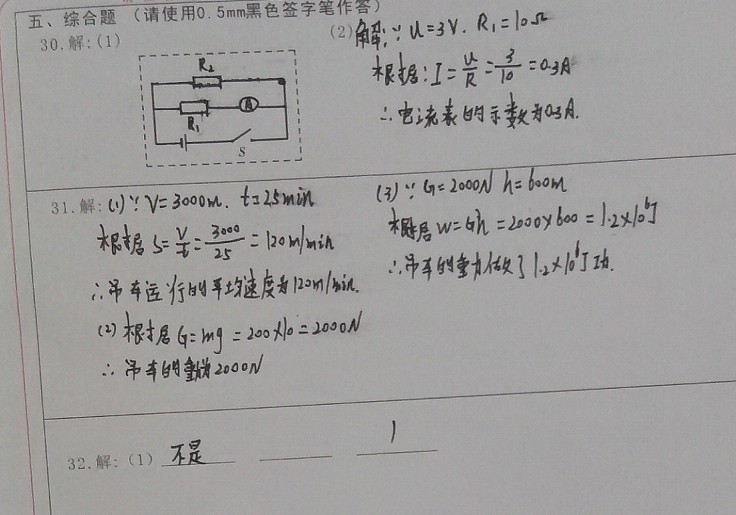 五、综合题 (请使用0.5mm黑色签字笔作答)
30.解:(1)
R₂
A
R₁
S
(2) 解:∵ U=3V. R₁=10Ω
根据:I=U/R=3/10=0.3A
∴电流表的示数为0.3A.
31.解:(1)∵ V=3000m. t=25min
根据 S=V/t=3000/25=120m/min
∴吊车运行的平均速度为120m/min.
(2) 根据 G=mg=200×10=2000N
∴吊车的重力为2000N
(3)∵ G=2000N h=600m
根据 W=Gh=2000×600=1.2×10⁶J
∴吊车的重力做了1.2×10⁶J功.
32.解:(1) 不是 1